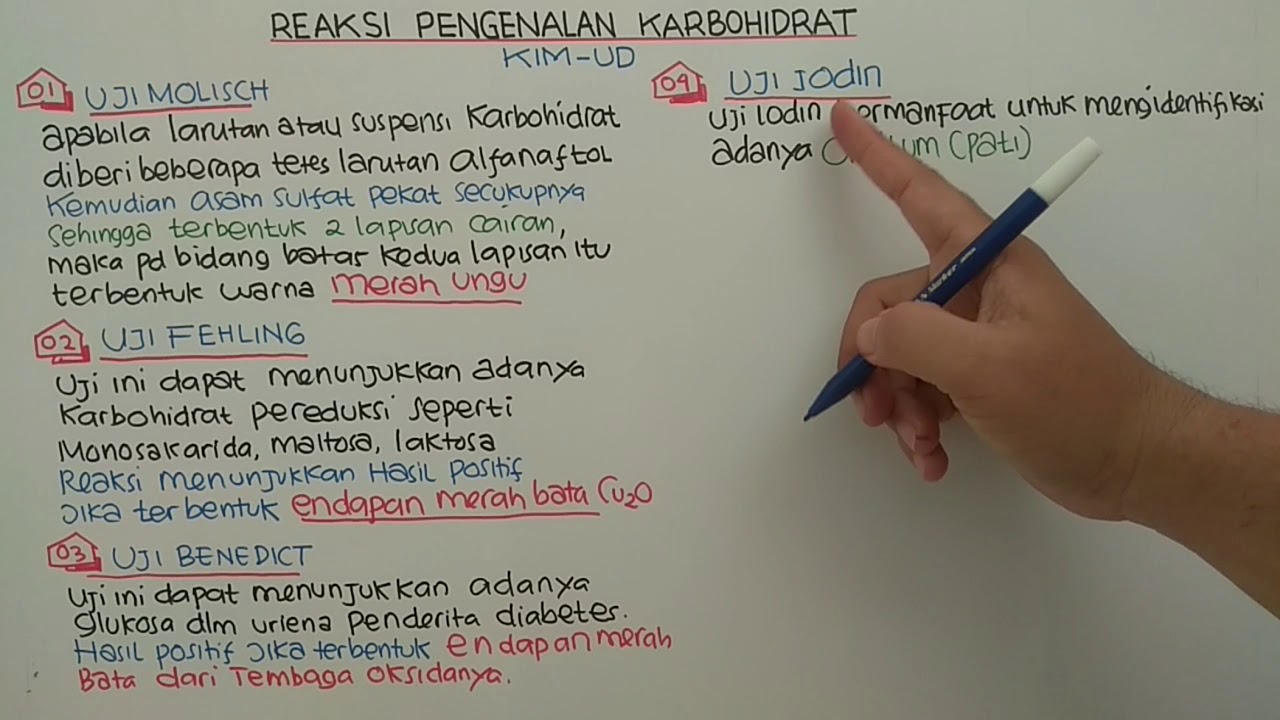 REAKSI PENGENALAN KARBOHIDRAT
KIM-UD
01 UJI MOLISCH
apabila larutan atau suspensi Karbohidrat
diberi beberapa tetes larutan alfanaftol
Kemudian asam sulfat pekat secukupnya
Sehingga terbentuk 2 lapisan cairan,
maka pd bidang batas kedua lapisan itu
terbentuk warna merah ungu
02 UJI FEHLING
Uji ini dapat menunjukkan adanya
Karbohidrat pereduksi seperti
Monosakarida, maltosa, laktosa
Reaksi menunjukkan Hasil positif
Jika terbentuk endapan merah bata Cu2O
03 UJI BENEDICT
Uji ini dapat menunjukkan adanya
glukosa dlm uriena penderita diabetes.
Hasil positif Jika terbentuk endapan merah
Bata dari Tembaga oksidanya.
04 UJI Jodin
Uji Iodin untuk mengidentifikasi
adanya (pati)